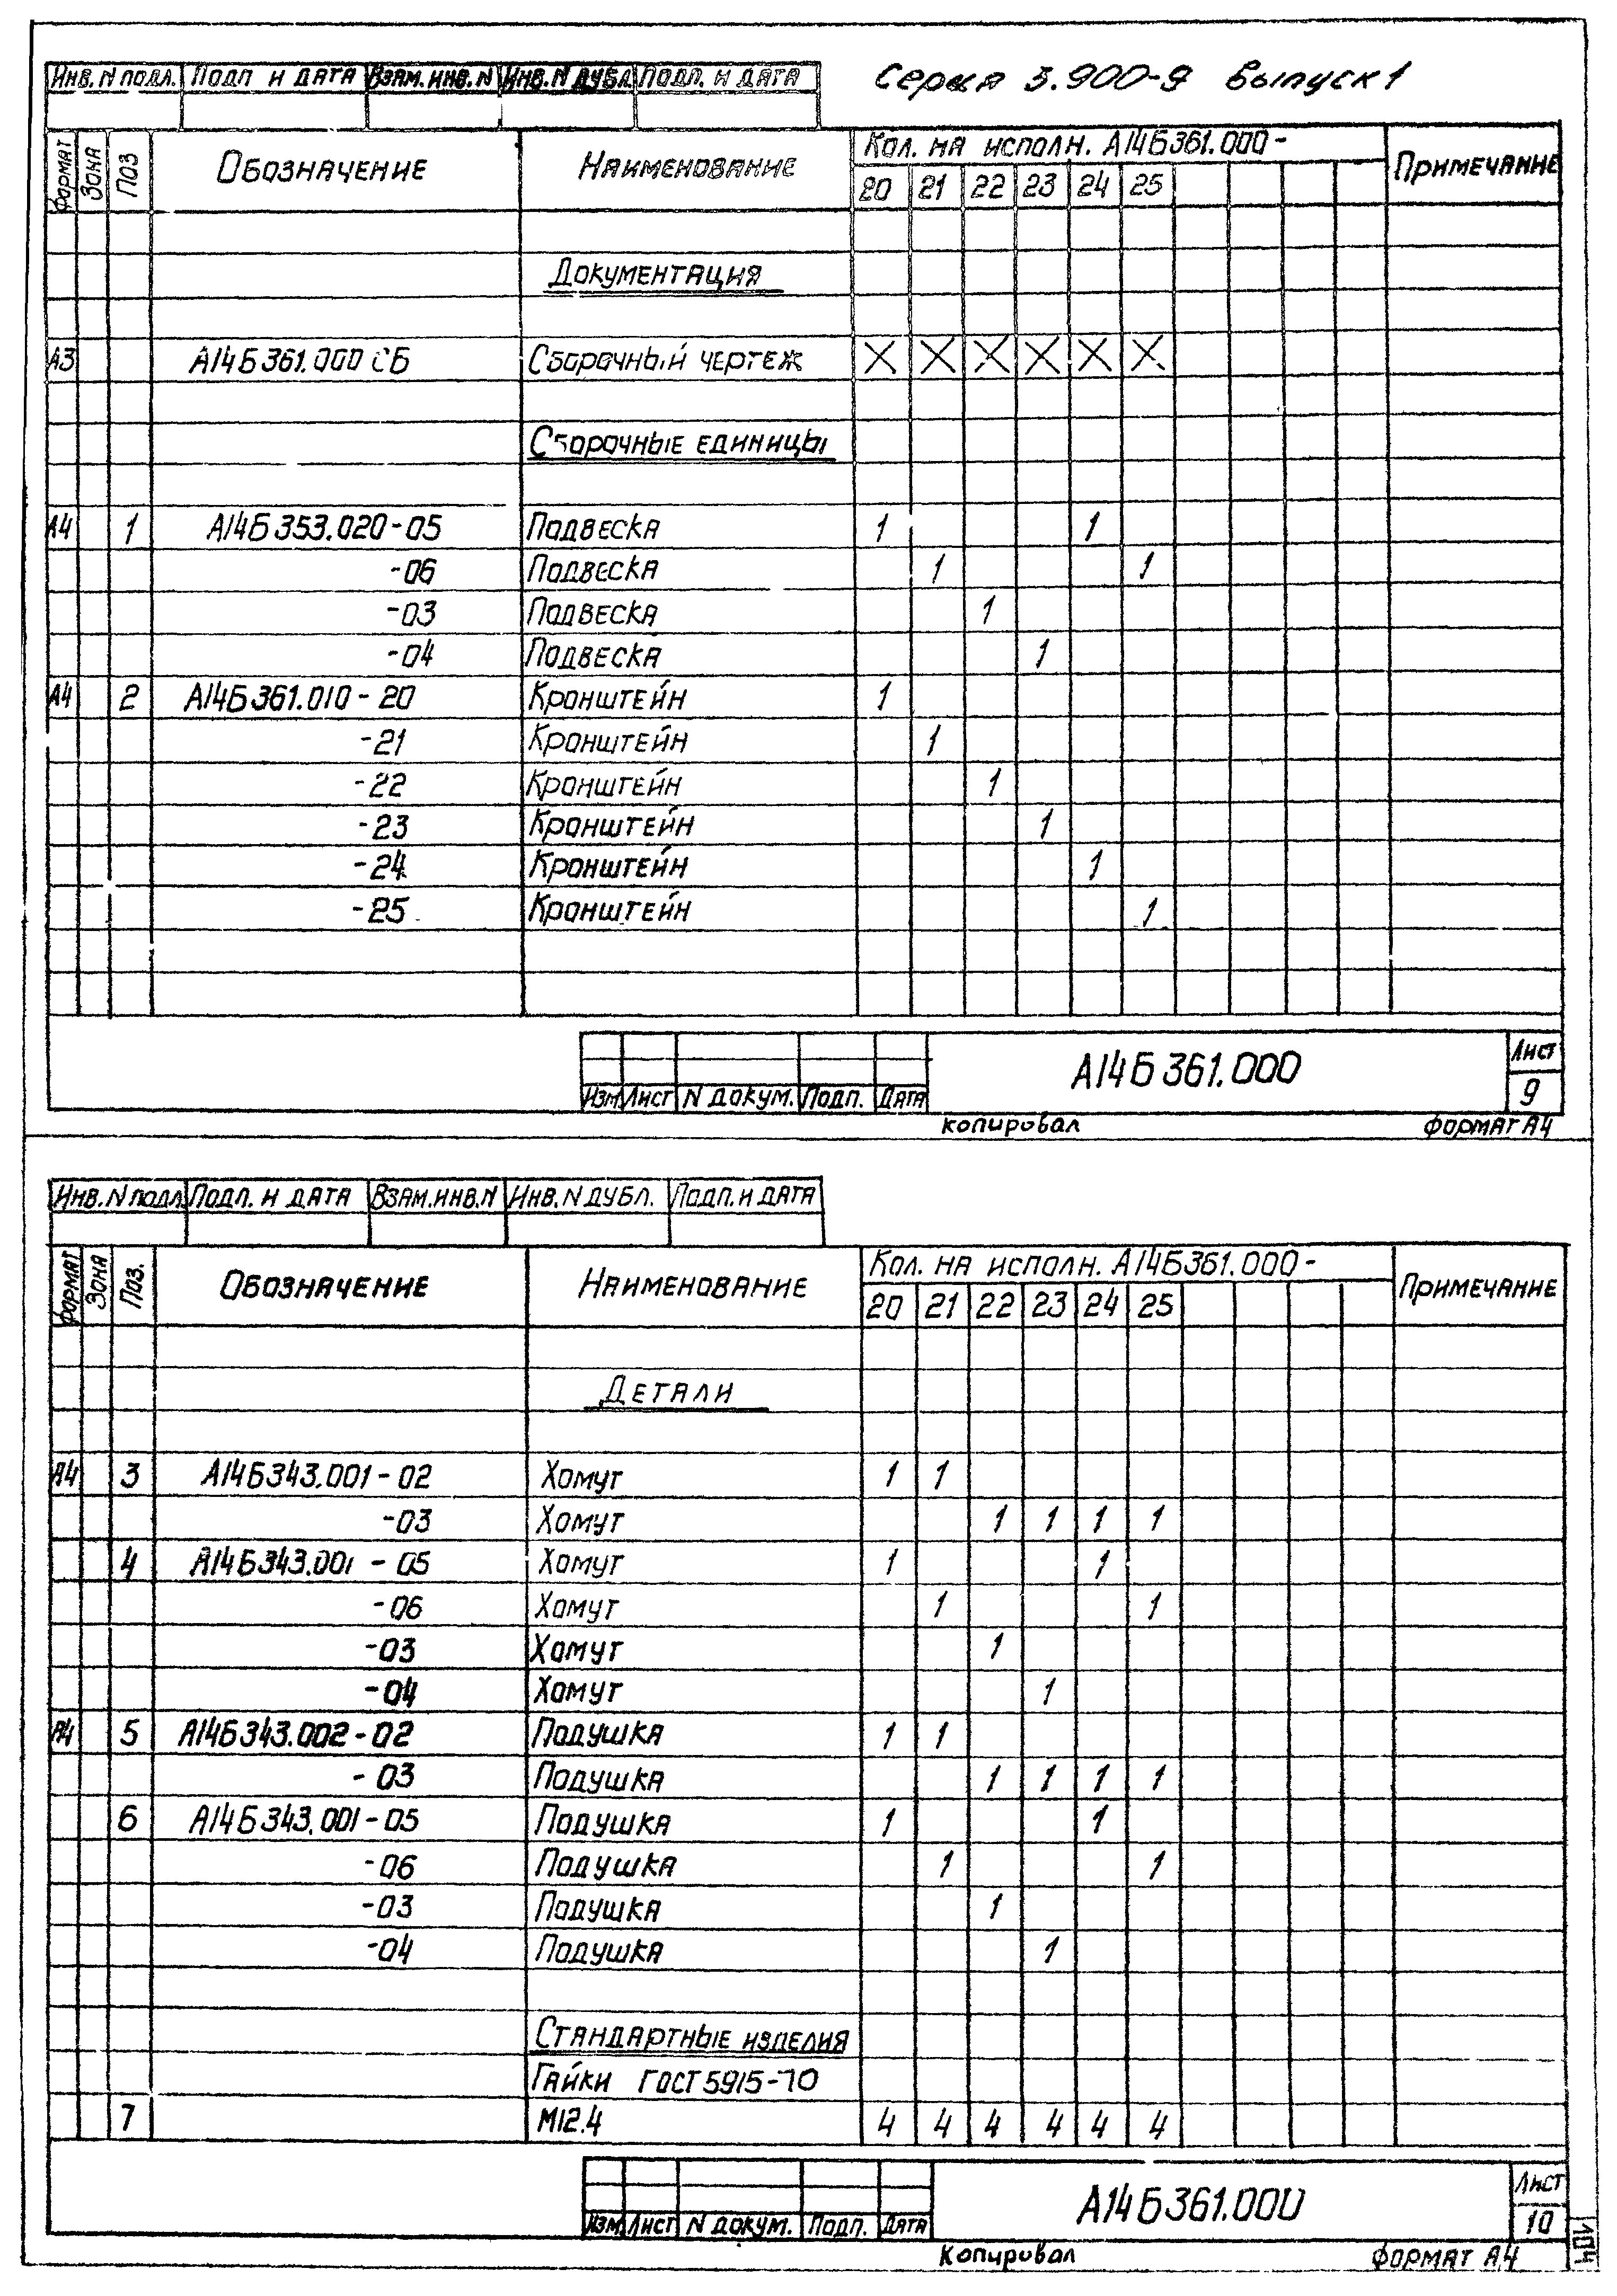 Серия 5.900-9 Выпуск 1
Инв. N подл. Подп и дата Взам. инв. N Инв. N дубл. Подп. и дата
Формат Зона Поз Обозначение Наименование Кол. на исполн. А14Б361.000- Примечание
20 21 22 23 24 25
Документация
А3 А14Б361.000 СБ Сборочный чертеж X X X X X X
Сборочные единицы
А4 1 А14Б353.020-05 Подвеска 1 1
-06 Подвеска 1 1
-03 Подвеска 1
-04 Подвеска 1
А4 2 А14Б361.010-20 Кронштейн 1
-21 Кронштейн 1
-22 Кронштейн 1
-23 Кронштейн 1
-24 Кронштейн 1
-25 Кронштейн 1
Изм Лист N докум. Подп. Дата А14Б361.000 Лист 9
Копировал Формат А4
Инв. N подл. Подп. и дата Взам. инв. N Инв. N дубл. Подп. и дата
Формат Зона Поз. Обозначение Наименование Кол. на исполн. А14Б361.000- Примечание
20 21 22 23 24 25
Детали
А4 3 А14Б343.001-02 Хомут 1 1
-03 Хомут 1 1 1 1
4 А14Б343.001-05 Хомут 1 1
-06 Хомут 1 1
-03 Хомут 1
-04 Хомут 1
А4 5 А14Б343.002-02 Подушка 1 1
-03 Подушка 1 1 1 1
6 А14Б343.001-05 Подушка 1 1
-06 Подушка 1 1
-03 Подушка 1
-04 Подушка 1
Стандартные изделия
Гайки ГОСТ 5915-70
7 М12.4 4 4 4 4 4 4
Изм Лист N докум. Подп. Дата А14Б361.000 Лист 10
Копировал Формат А4
104